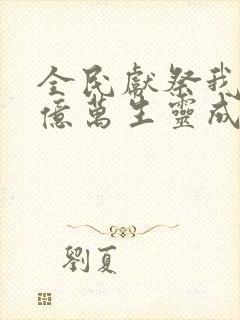 全民獻祭我
億萬生靈成
劉夏